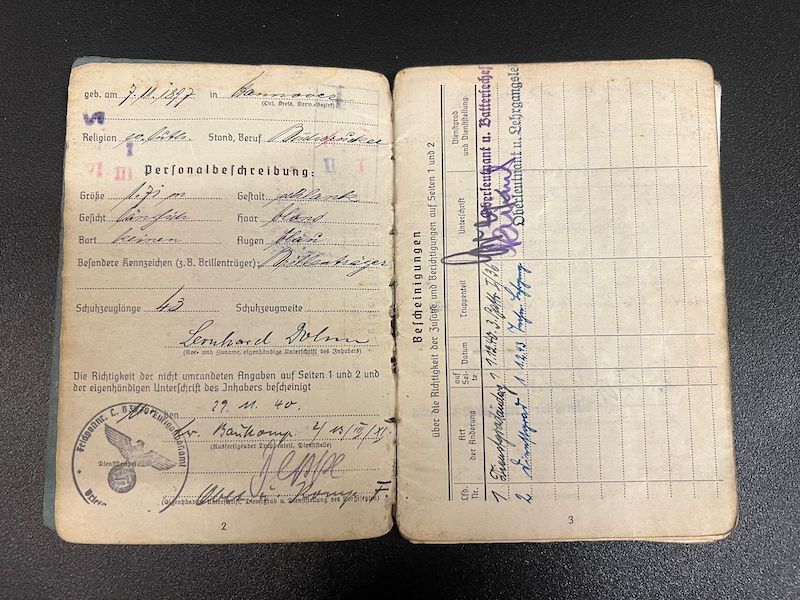 geb. am 7.11.1897 in Hannover
(Ort, Kreis, Verw.-Bezirk)
Religion Stand, Beruf
VI III II I
Personalbeschreibung:
Größe 1,71 m Gestalt schlank
Gesicht länglich Haar blond
Bart keinen Augen blau
Besondere Kennzeichen (z.B. Brillenträger): Brillenträger
Schuhzeuglänge 43 Schuhzeugweite
Leonhard
(Vor- und Zuname, eigenhändige Unterschrift des Inhabers)
Die Richtigkeit der nicht umrandeten Angaben auf Seiten 1 und 2 und
der eigenhändigen Unterschrift des Inhabers bescheinigt
den 29.11.40.
Feldpostnr.
Dienstsiegel
(Ausfertigender Truppenteil, Dienststelle)
(Eigenhändige Unterschrift, Dienstgrad u. Dienststellung des Vorgesetzten)
2
Bescheinigungen
über die Richtigkeit der Zusätze und Berichtigungen auf Seiten 1 und 2
Lfd. Nr.
Art der Änderung
auf Seite
Datum
Truppenteil
Unterschrift
Dienstgrad und Dienststellung
1 1 1.12.42
Oberleutnant u. Batteriechef
2 Dienstgrad 1 1.12.43
Oberleutnant u. Lehrgangsleiter
3